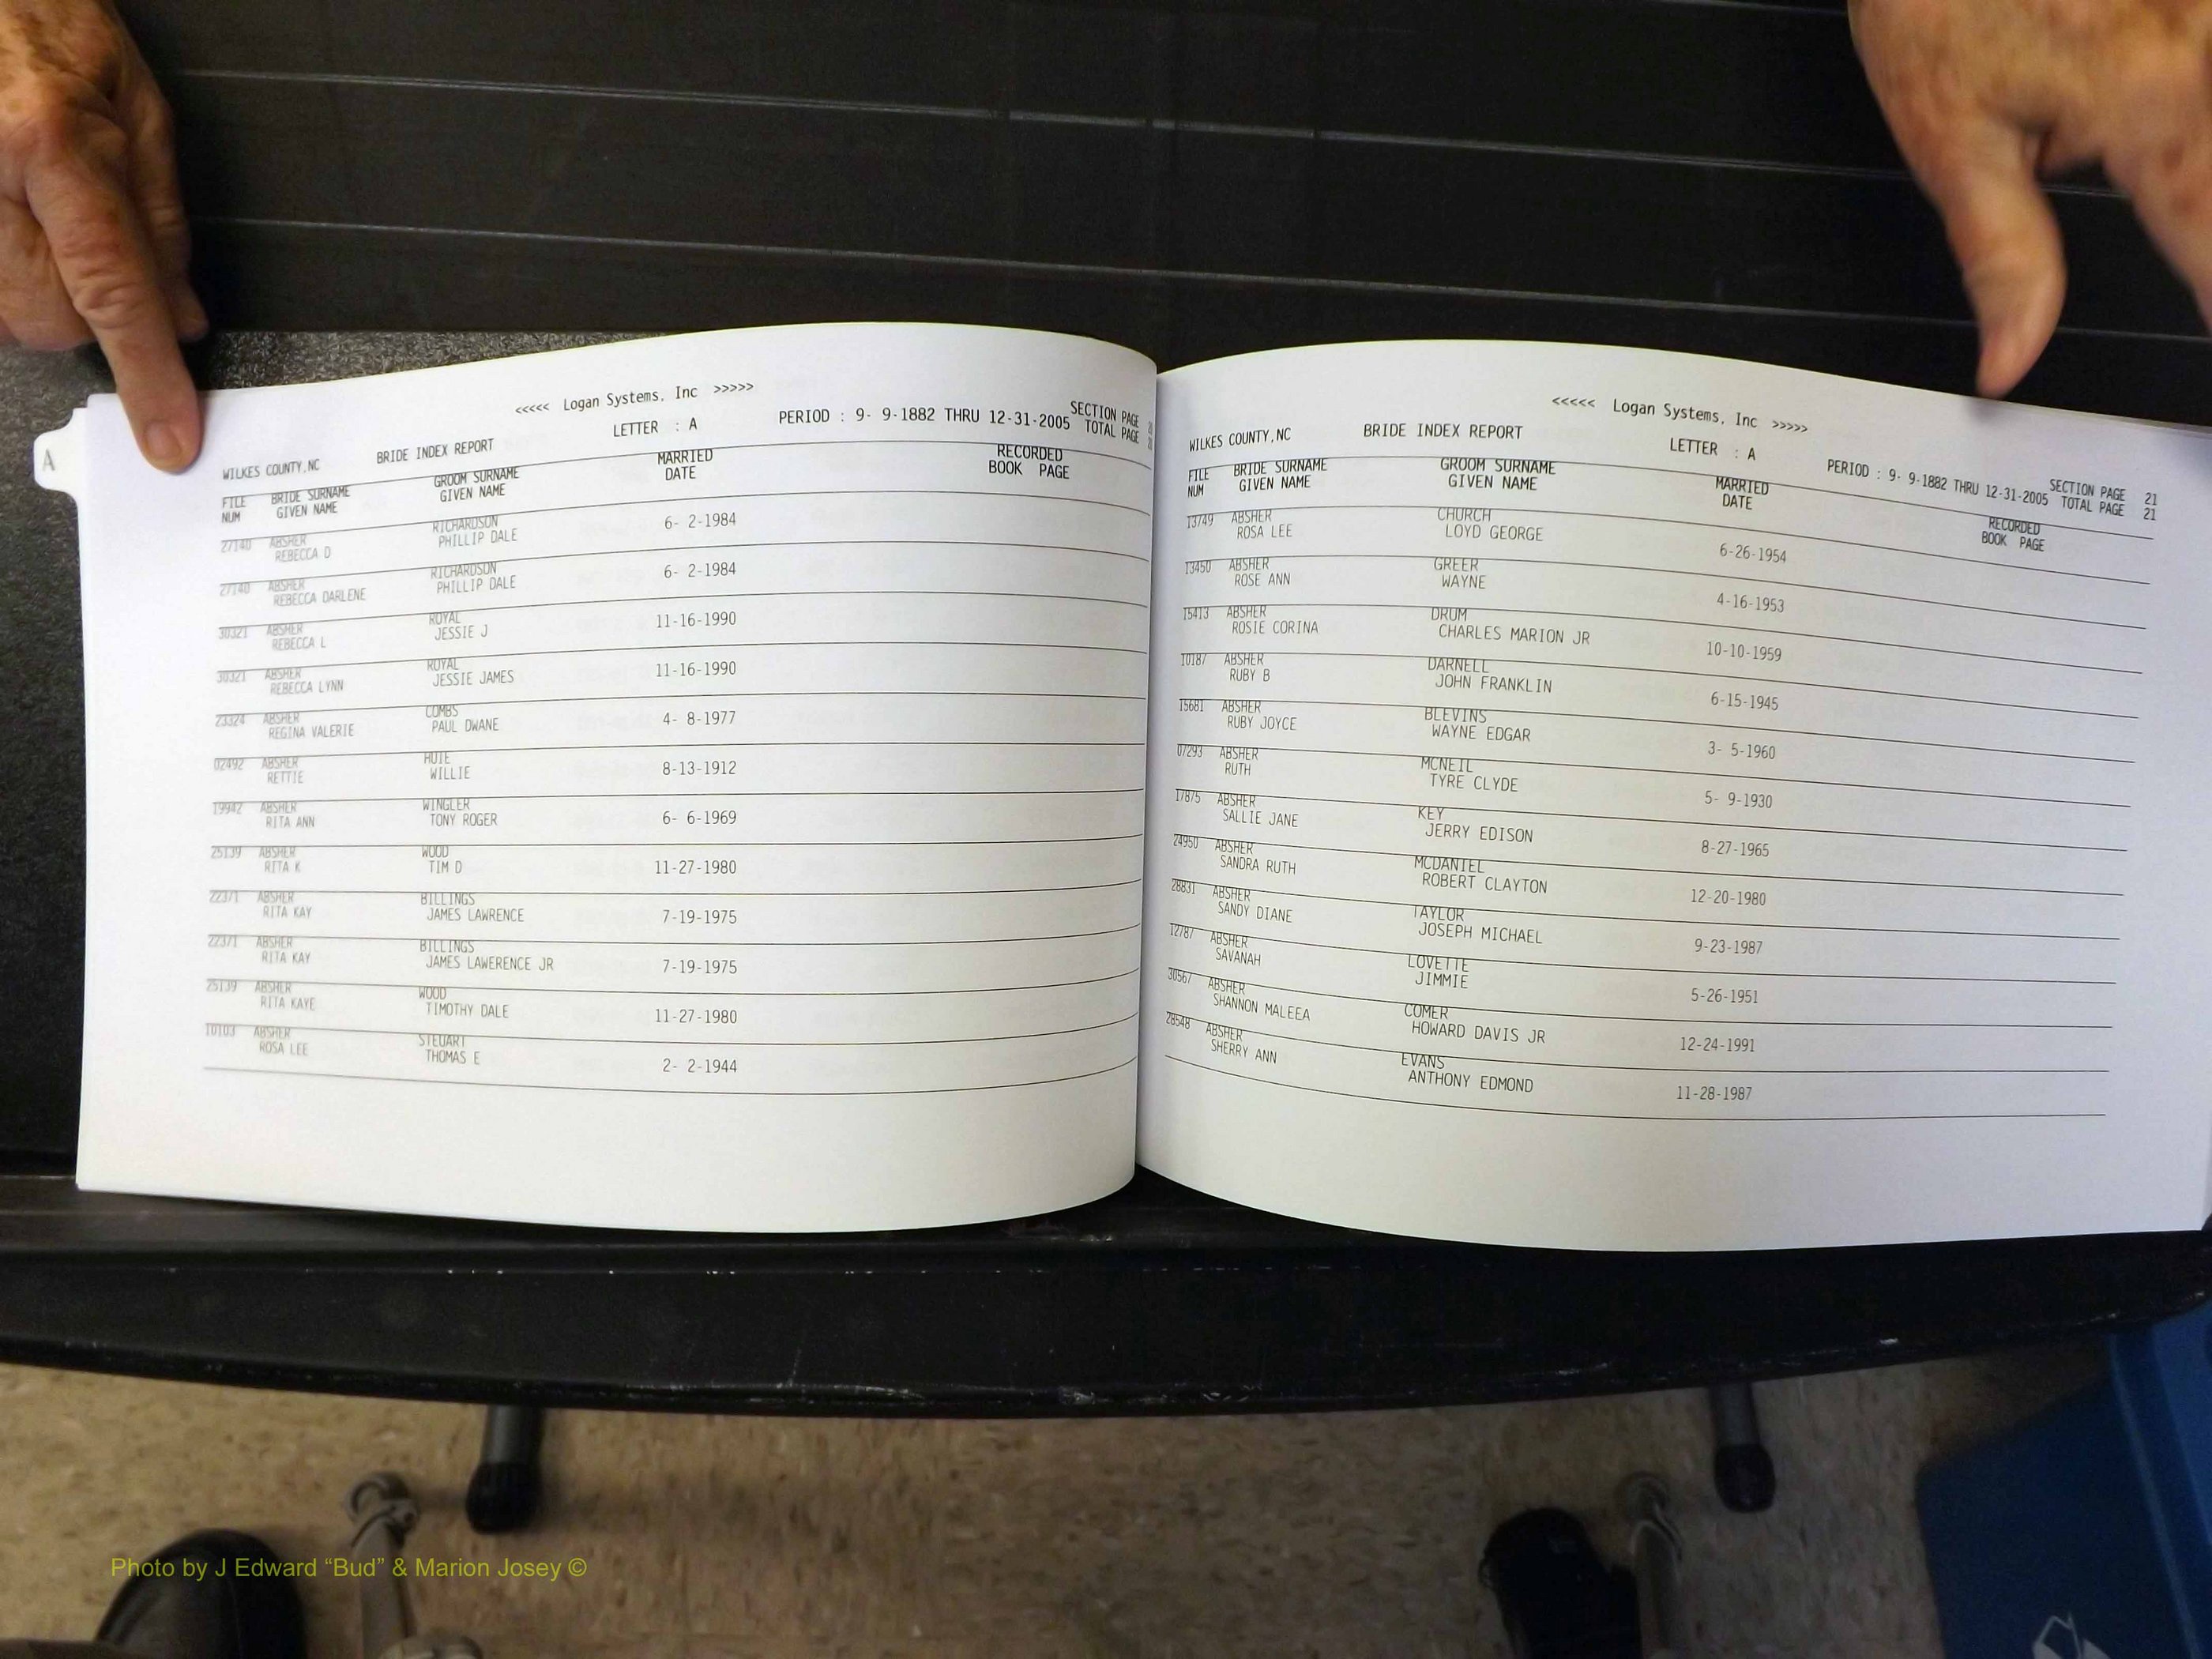 A
<<<<< Logan Systems, Inc >>>>>
WILKES COUNTY,NC BRIDE INDEX REPORT LETTER : A PERIOD : 9- 9-1882 THRU 12-31-2005 SECTION PAGE
TOTAL PAGE
FILE BRIDE SURNAME GROOM SURNAME MARRIED RECORDED
NUM GIVEN NAME GIVEN NAME DATE BOOK PAGE
27140 ABSHER RICHARDSON 6- 2-1984
REBECCA D PHILLIP DALE
27140 ABSHER RICHARDSON 6- 2-1984
REBECCA DARLENE PHILLIP DALE
30321 ABSHER ROYAL 11-16-1990
REBECCA L JESSIE J
30321 ABSHER ROYAL 11-16-1990
REBECCA LYNN JESSIE JAMES
23324 ABSHER COMBS 4- 8-1977
REGINA VALERIE PAUL DWANE
02492 ABSHER 8-13-1912
RETTIE WILLIE
19942 ABSHER WINGLER 6- 6-1969
RITA ANN TONY ROGER
25139 ABSHER WOOD 11-27-1980
RITA K TIM D
22371 ABSHER BILLINGS 7-19-1975
RITA KAY JAMES LAWRENCE
22371 ABSHER BILLINGS 7-19-1975
RITA KAY JAMES LAWERENCE JR
25139 ABSHER WOOD 11-27-1980
RITA KAYE TIMOTHY DALE
10103 ABSHER STEUART 2- 2-1944
ROSA LEE THOMAS E
<<<<< Logan Systems, Inc >>>>>
WILKES COUNTY,NC BRIDE INDEX REPORT LETTER : A PERIOD : 9- 9-1882 THRU 12-31-2005 SECTION PAGE 21
TOTAL PAGE 21
FILE BRIDE SURNAME GROOM SURNAME MARRIED RECORDED
NUM GIVEN NAME GIVEN NAME DATE BOOK PAGE
13749 ABSHER CHURCH 6-26-1954
ROSA LEE LOYD GEORGE
13450 ABSHER GREER 4-16-1953
ROSE ANN WAYNE
15413 ABSHER DRUM 10-10-1959
ROSIE CORINA CHARLES MARION JR
10187 ABSHER DARNELL 6-15-1945
RUBY B JOHN FRANKLIN
15681 ABSHER BLEVINS 3- 5-1960
RUBY JOYCE WAYNE EDGAR
07293 ABSHER MCNEIL 5- 9-1930
RUTH TYRE CLYDE
17875 ABSHER KEY 8-27-1965
SALLIE JANE JERRY EDISON
24950 ABSHER MCDANIEL 12-20-1980
SANDRA RUTH ROBERT CLAYTON
28831 ABSHER TAYLOR 9-23-1987
SANDY DIANE JOSEPH MICHAEL
12787 ABSHER LOVETTE 5-26-1951
SAVANAH JIMMIE
30567 ABSHER COMER 12-24-1991
SHANNON MALEEA HOWARD DAVIS JR
28548 ABSHER EVANS 11-28-1987
SHERRY ANN ANTHONY EDMOND
Photo by J Edward “Bud” & Marion Josey ©